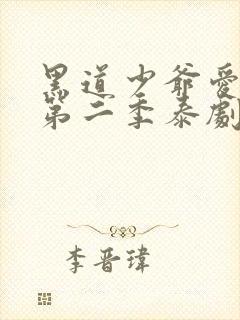 黑道少爺愛
第二季泰劇
李晋瑋